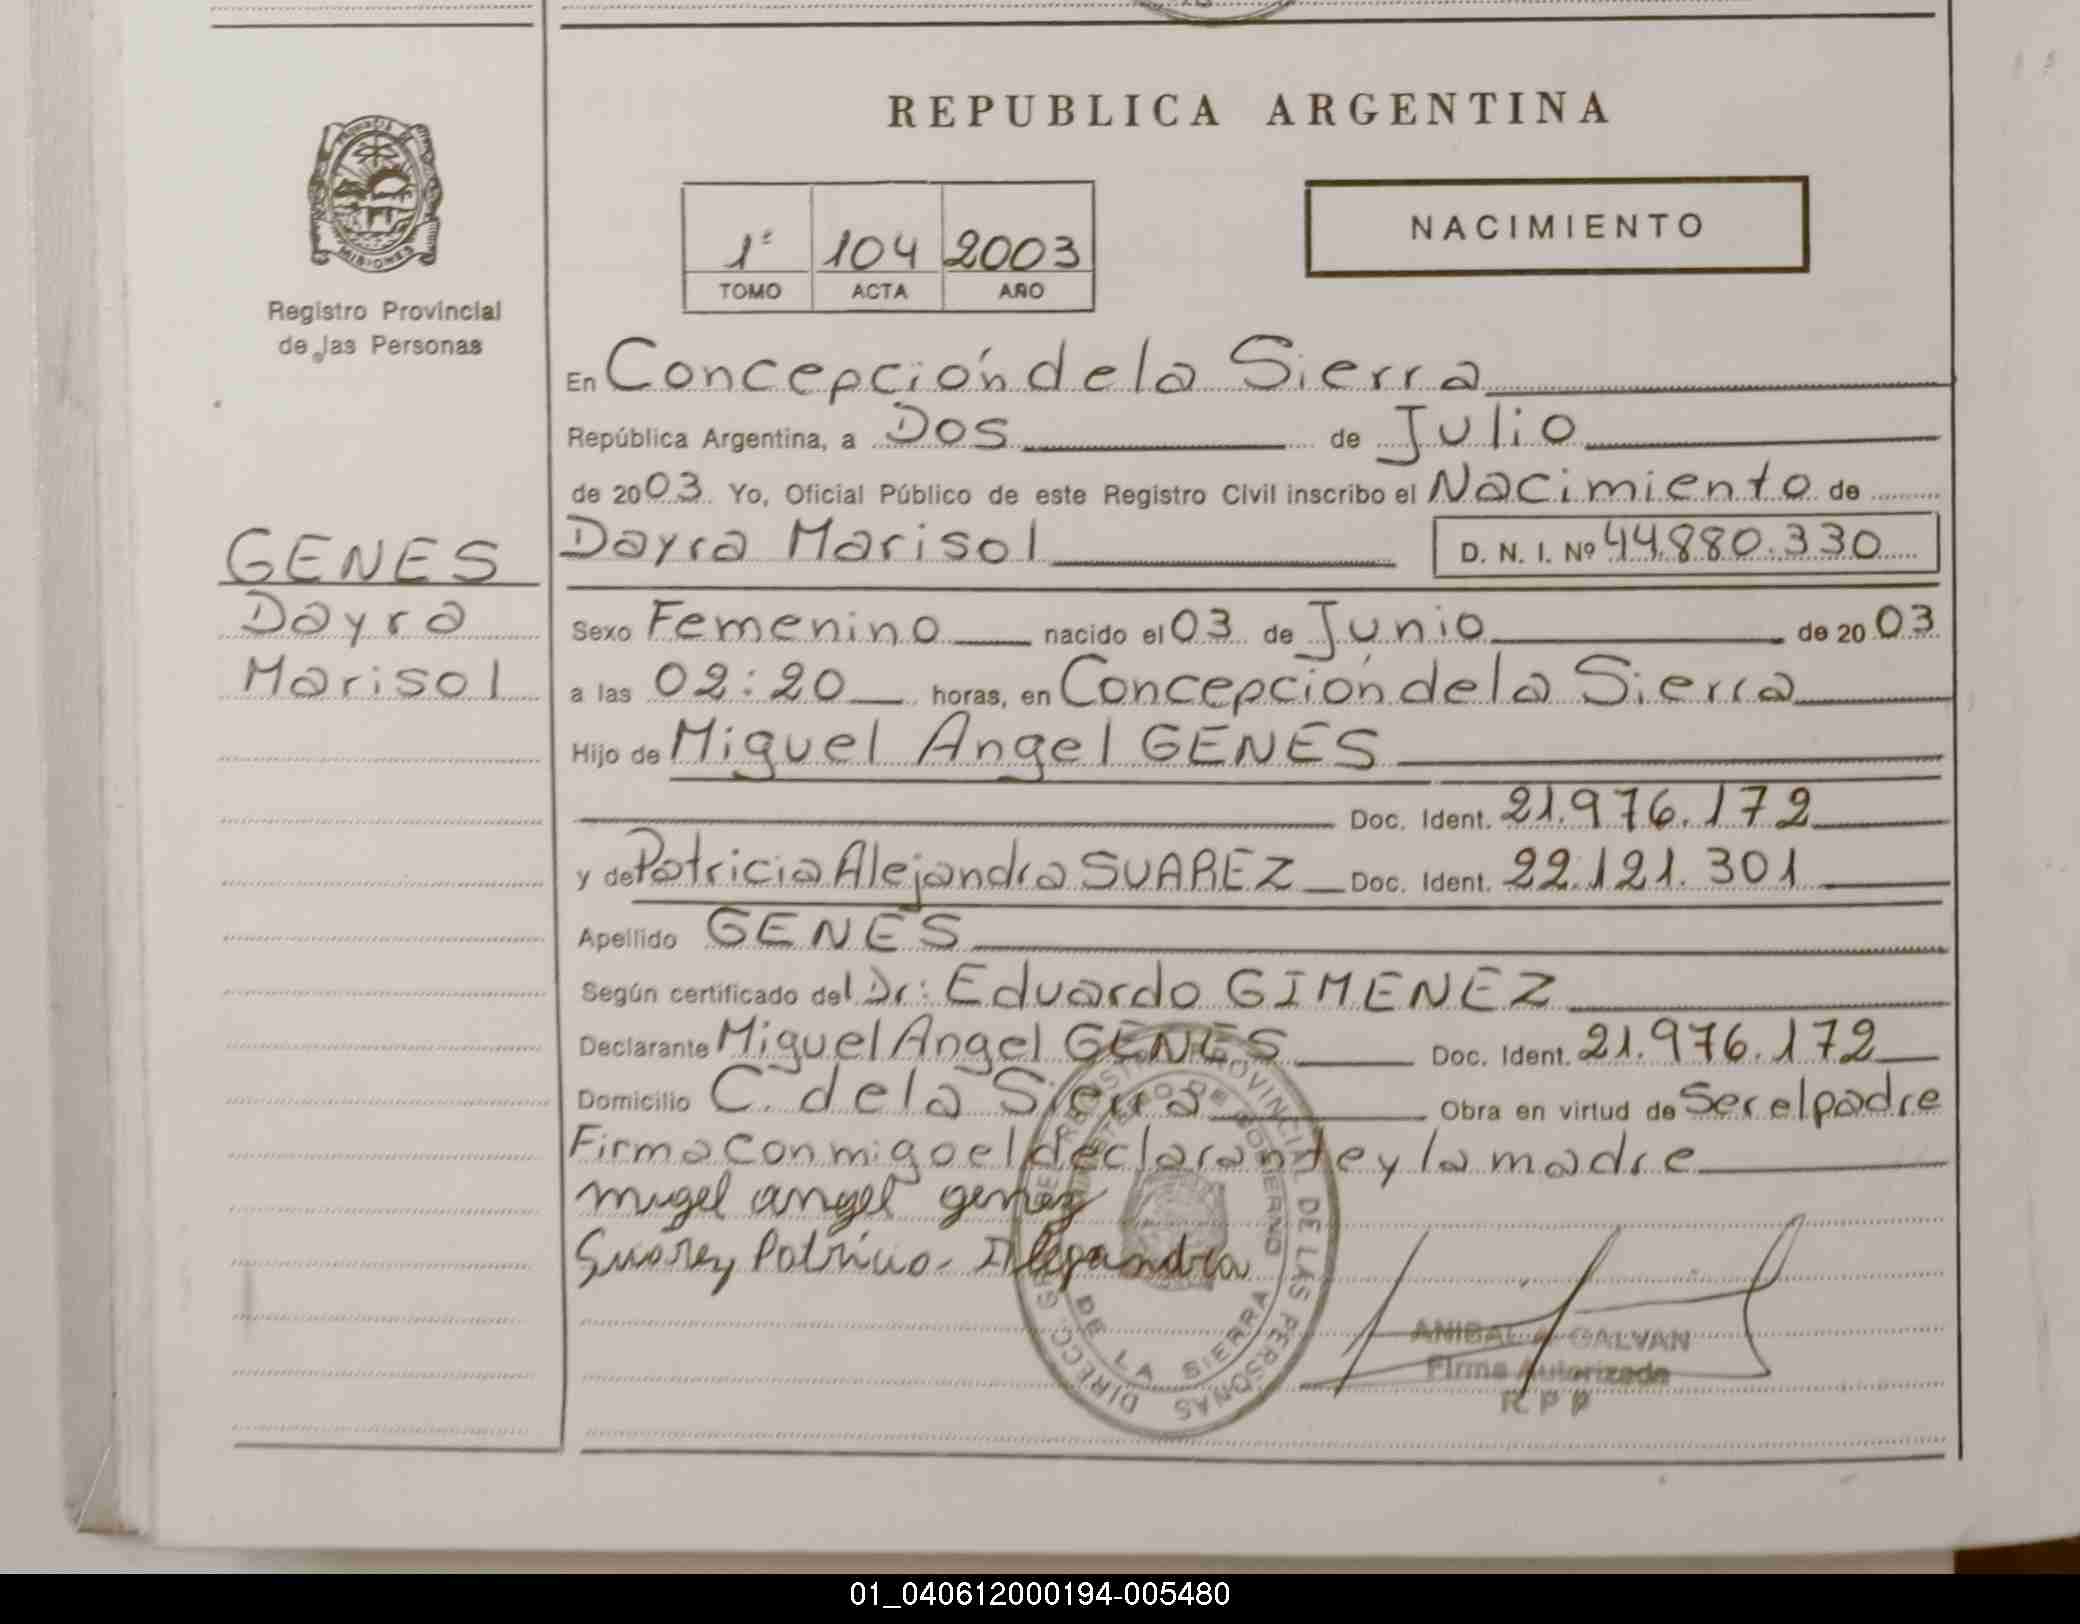 REPUBLICA ARGENTINA
NACIMIENTO
1º 104 2003
TOMO ACTA AÑO
MISIONES
Registro Provincial
de las Personas
En Concepción de la Sierra
República Argentina, a Dos de Julio
de 2003 Yo, Oficial Público de este Registro Civil inscribo el Nacimiento de
GENES
Dayra
Marisol
Dayra Marisol D. N. I. Nº 44.880.330
Sexo Femenino nacido el 03 de Junio de 2003
a las 02:20 horas, en Concepción de la Sierra
Hijo de Miguel Angel GENES
Doc. Ident. 21.976.172
y de Patricia Alejandra SUAREZ Doc. Ident. 22.121.301
Apellido GENES
Según certificado del Dr: Eduardo GIMENEZ
Declarante Miguel Angel GENES Doc. Ident. 21.976.172
Domicilio C. de la Sierra Obra en virtud de Ser el padre
Firma conmigo el declarante y la madre
migel angel genez
Suarez Patricia Alejandra
REGISTRO PROVINCIAL DE LAS PERSONAS
MINISTERIO DE GOBIERNO
DE LA SIERRA
ANIBAL A GALVAN
Firma Autorizada
R P P
01_040612000194-005480